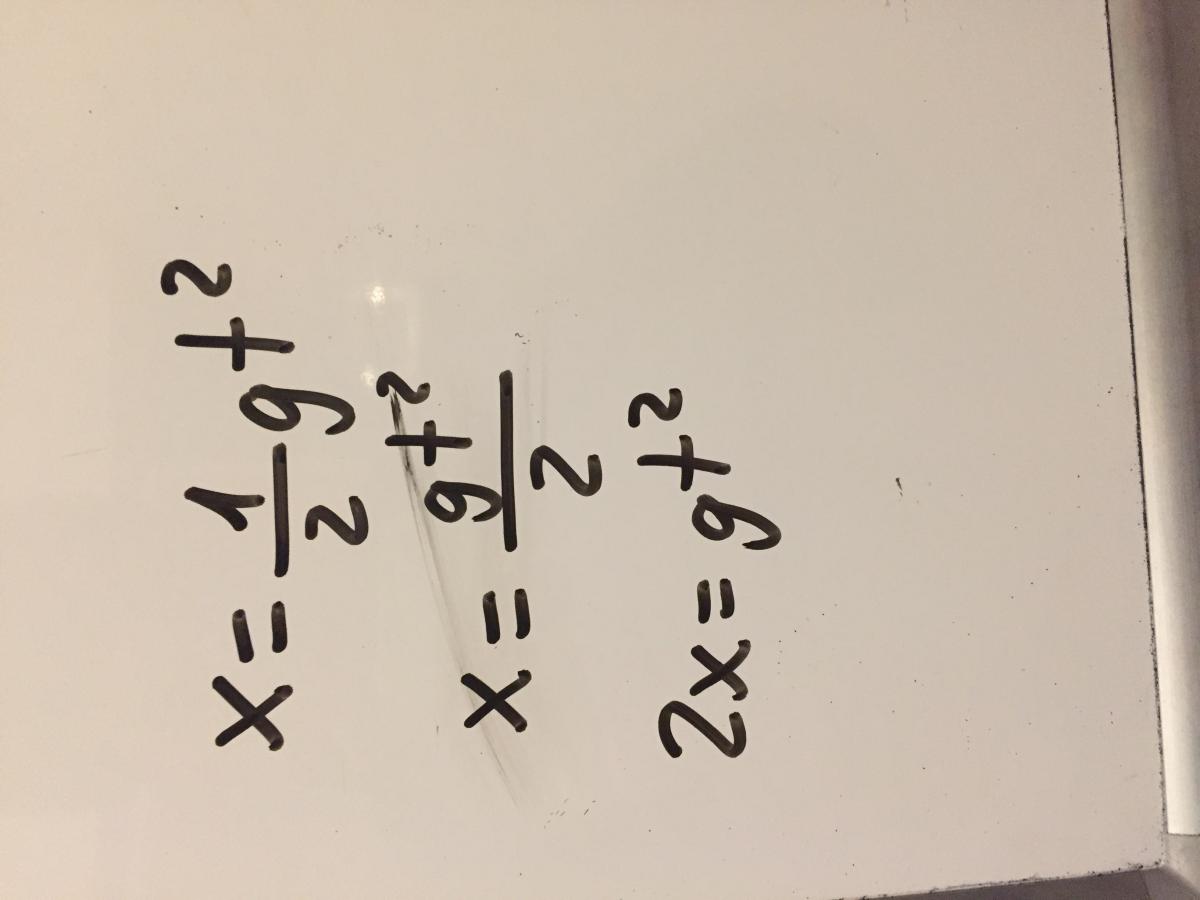 x = 1/2 gt²
x = gt²/2
2x = gt²